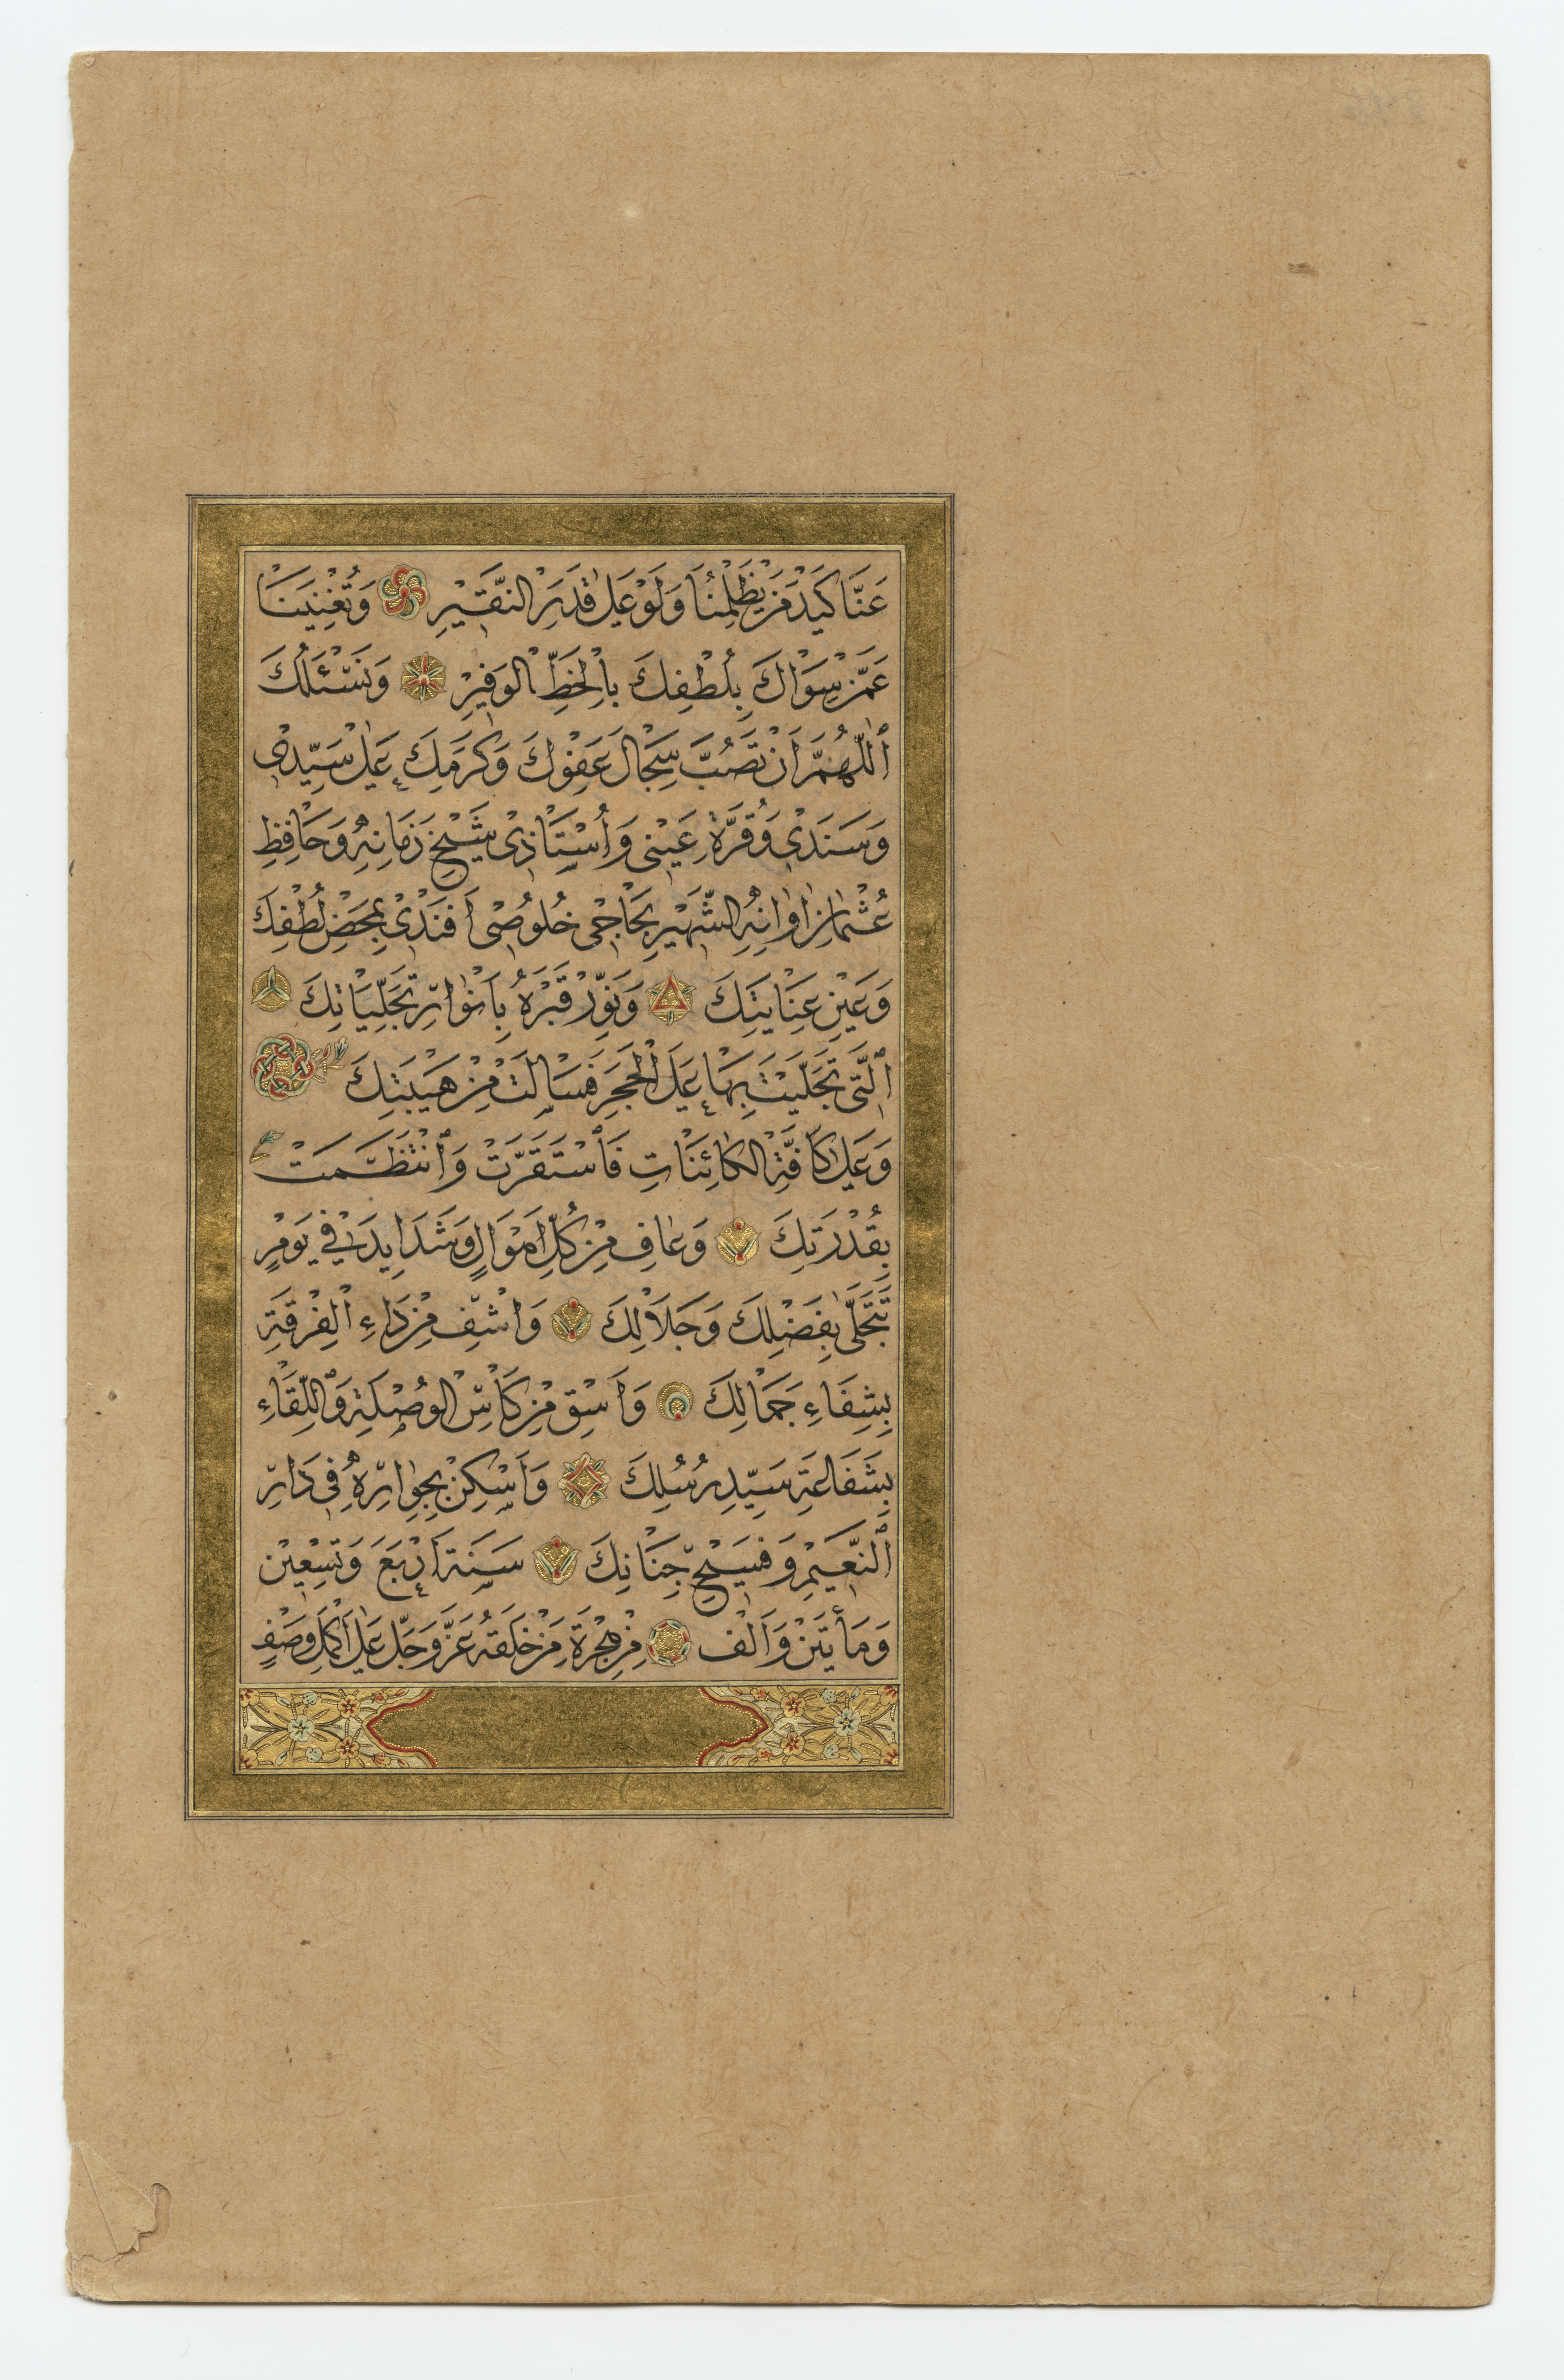 عَنَّا كَيْدَ مَنْ يَظْلِمُنَا وَلَوْ عَلٰى قَدَرِ النَّقِيْرِ وَتُغْنِيَنَا
عَمَّنْ سِوَاكَ بِلُطْفِكَ بِالْحَظِّ الْوَفِيْرِ وَنَسْئَلُكَ
اَللّٰهُمَّ اَنْ تَصُبَّ سِجَالَ عَفْوِكَ وَكَرَمِكَ عَلٰى سَيِّدِى
وَسَنَدِى وَقُرَّةِ عَيْنِى وَأُسْتَاذِىْ شَيْخِ زَمَانِهِ وَحَافِظِ
عُثْمَانِ اَوَانِهِ الشَّهِيْرِ بِحَاجِى خُلُوصِى اَفَنْدِىْ بِمَحْضِ لُطْفِكَ
وَعَيْنِ عِنَايَتِكَ وَنَوِّرْ قَبْرَهُ بِاَنْوَارِ تَجَلِّيَاتِكَ
اَلَّتِى تَجَلَّيْتَ بِهَا عَلَى الْحَجَرِ فَسَالَتْ مِنْ هَيْبَتِكَ
وَعَلٰى كَافَّةِ الْكَائِنَاتِ فَاسْتَقَرَّتْ وَانْتَظَمَتْ
بِقُدْرَتِكَ وَعَافِ مِنْ كُلِّ اَهْوَالٍ وَشَدَايِدَ فِى يَوْمٍ
تَتَجَلّٰى بِفَضْلِكَ وَجَلَالِكَ وَاشْفِ مِنْ دَاءِ الْفِرْقَةِ
بِشِفَاءِ جَمَالِكَ وَاَسْقِ مِنْ كَأْسِ الْوُصْلَةِ وَاللِّقَاءِ
بِشَفَاعَةِ سَيِّدِ رُسُلِكَ وَاَسْكِنْ بِجِوَارِهِ فِى دَارِ
اَلنَّعِيْمِ وَفَسِيْحِ جِنَانِكَ سَنَةَ اَرْبَعَ وَتِسْعِيْنَ
وَمَأَتَيْنِ وَاَلْف مِنْ هِجْرَةِ مَنْ خَلَقَهُ عَزَّ وَجَلَّ عَلٰى اَكْمَلِ وَصْفٍ